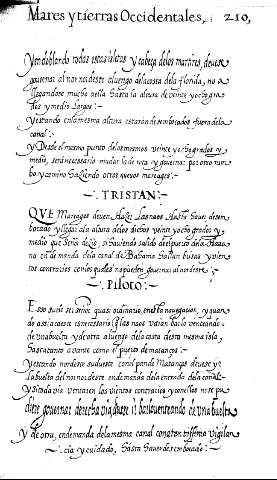 Mares y tierras Occidentales, 210,
y en doblando todas estas isletas y cabeça delos martires, deuese
gouernar al nornordeste aluengo dela costa dela florida, no a
llegandose mucho aella hasta la altura de veinte y ocho gra
dos y medio largos:
y estando enla mesma altura estaran desembocados fuera dela
canal:
y Desde el mesmo punto delos mesmos veinte y ocho grados y
medio, sera necessario mudar la derota y gouernar por otro rum
bo y camino haziendo otros nueuos mareages:
TRISTAN:
QVE Mareages deuen hazer las naos hasta hauer desem
bocado y llegar ala altura delos dichos veinte y ocho grados y
medio que Señor dezis, si hauiendo salido del puerto dela Haua
na en demanda dela canal de Bahama hallan brisas y vien
tos contrarios conlos quales no pueden gouernar al nordeste:
Piloto:
Esso suele ser como quasi ordinario, enesta nauegacion, y quan
do assi acaece es necessario q̃ las naos vaian barlouenteando
de vna buelta y de otra aluengo dela costa desta mesma isla,
hasta tanto auante como el puerto de matanças:
y estando nordeste sudueste con el pan de Matanças deuese yr
la buelta del nornordeste en demanda dela entrada dela canal:
y si toda via ventaren los vientos contrarios y conellos no se pu
diere gouernar derecha via, hase ir barlouenteando de vna buelta
y de otra, en demanda dela mesma canal con grandissima vigilan
cia y cuidado, hasta hauer desembocado: